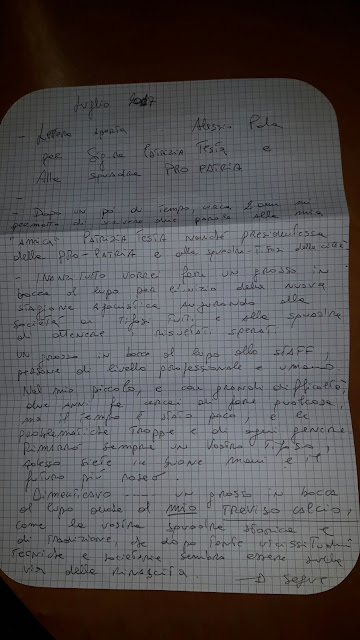 Luglio 2017
- Lettera aperta Alessio Pala
per Sig.ra PATRIZIA TESTA e
Alla squadra PRO PATRIA
-
- Dopo un po' di tempo, circa 2 anni mi
permetto di scrivere due parole alla mia
"amica" PATRIZIA TESTA nonché presidentessa
della PRO-PATRIA e alla squadra-TIFOSI della città
- INNANZITUTTO VORREI fare un grosso in
bocca al lupo per l'inizio della nuova
stagione sportistica augurando alla
società e Tifosi TUTTI e alla squadra
di ottenere i risultati sperati.
UN grosso in bocca al lupo allo STAFF,
persone di livello professionale e umano.
Nel mio piccolo, e con grandi difficoltà,
due anni fa cercai di fare qualcosa,
ma il tempo è stato poco, e le
problematiche troppe e di ogni genere
Rimarrò sempre un vostro tifoso,
adesso siete in buone mani e il
futuro più roseo.
Dimenticavo ---- un grosso in bocca
al lupo anche al mio TREVISO CALCIO,
come la vostra squadra storica e
di tradizione, che dopo tante vicissitudini
Tecniche e societarie sembra essere sulla
via della RINASCITA. → segue